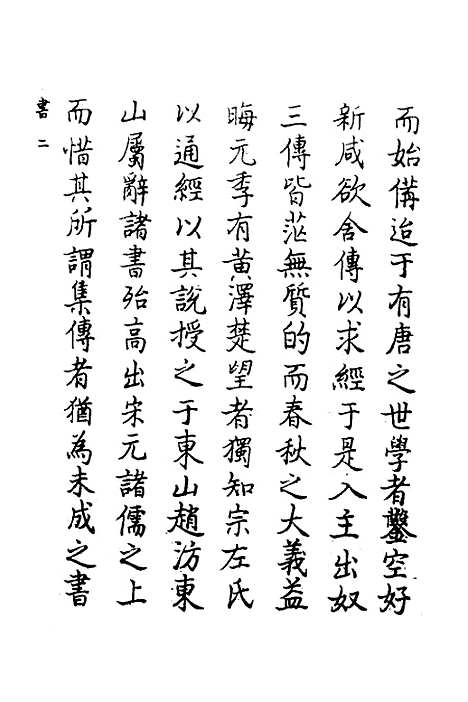 而始備迨于有唐之世學者鑿空好
新咸欲舍傳以求經于是入主出奴
三傳皆茫無質的而春秋之大義益
晦元季有黃澤楚望者獨知宗左氏
以通經以其說授之于東山趙汸東
山屬辭諸書殆高出宋元諸儒之上
而惜其所謂集傳者猶為未成之書
書二